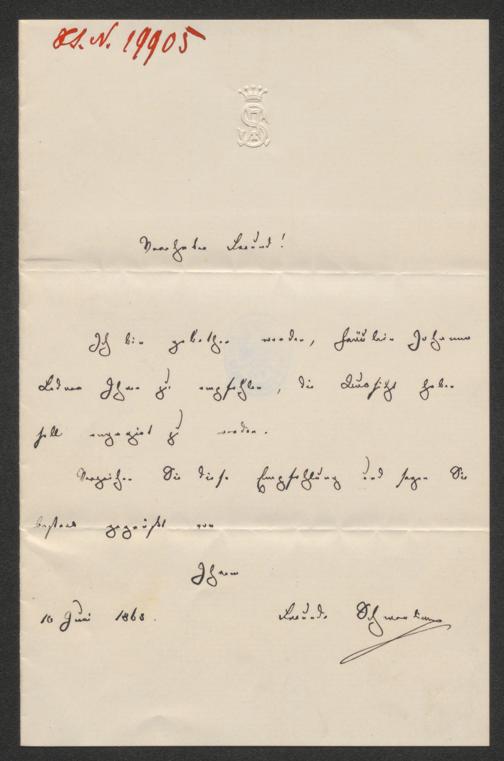 I.N. 19905
Verehrter Freund!
Ich bin gebethen worden, Fräulein Johanna
Ihnen zu empfehlen, die Aussicht haben
soll engagirt zu werden.
Verzeihen Sie diese Empfehlung und seyen Sie
bestens gegrüßt von
Ihrem
10 Juni 186
Freunde